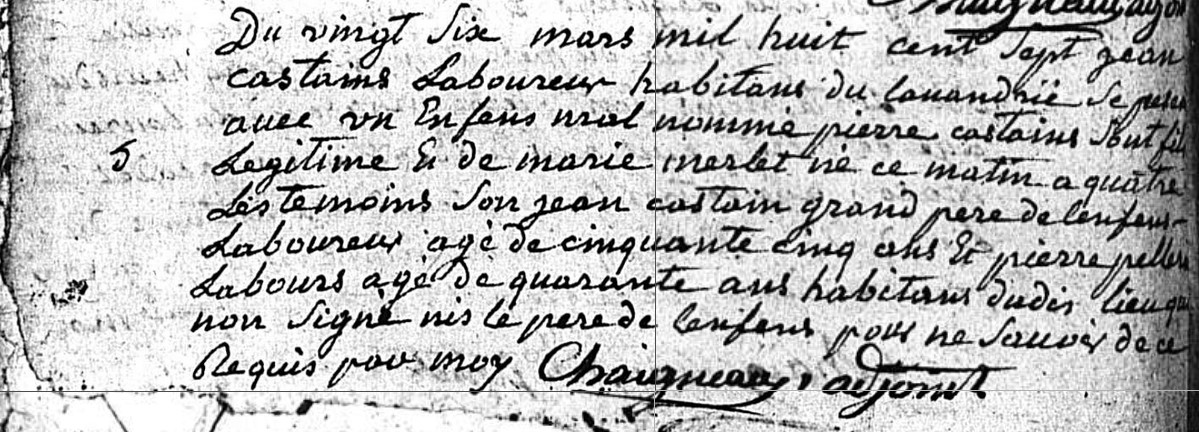 Chaigneau adjoint
Du vingt Six mars mil huit cent Sept jean
castains Laboureur habitans du lauandrie Se
auec vn Enfens mal nommé pierre castains Sont fils
5 Legitime Et de marie merlet né ce matin a quatre
Les temoins Son jean castain grand pere de lenfens
Laboureur agé de cinquante cinq ans Et pierre
Labours agé de quarante ans habitans dudis lieu
non Signé nis le pere de lenfens pour ne Sauoir de ce
Requis par moy Chaigneau, adjoint